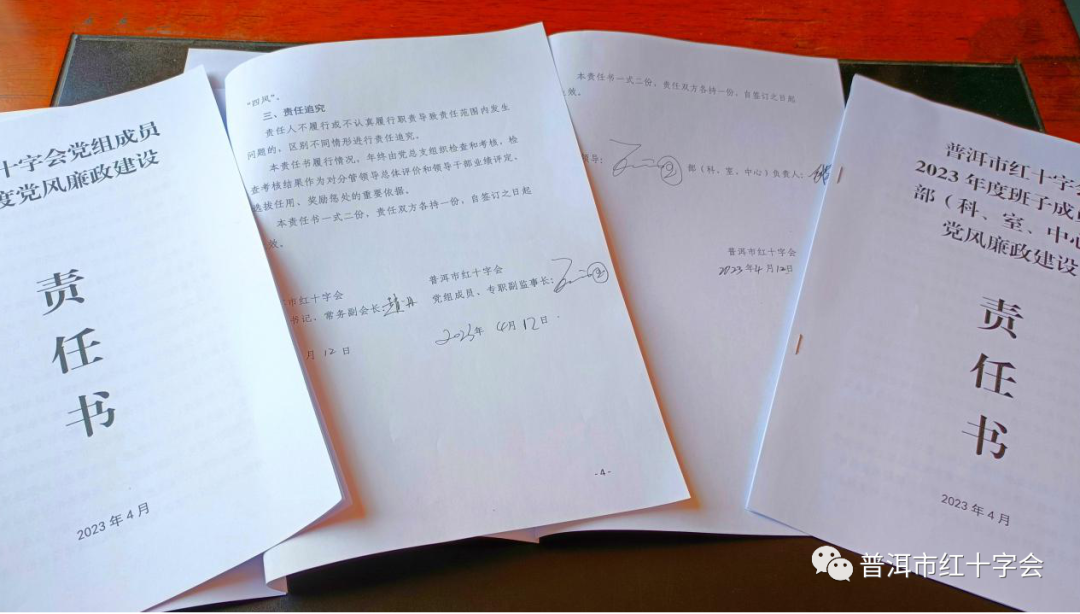 十字会党组成员
度党风廉政建设
责
任
书
2023 年 4 月
“四风”。
三、责任追究
责任人不履行或不认真履行职责导致责任范围内发生
问题的，区别不同情形进行责任追究。
本责任书履行情况，年终由党总支组织检查和考核，检
查考核结果作为对分管领导总体评价和领导干部业绩评定、
选拔任用、奖励惩处的重要依据。
本责任书一式二份，责任双方各持一份，自签订之日起
效。
市红十字会
书记、常务副会长：
月 12 日
普洱市红十字会
党组成员、专职副监事长：
2023年 4月12日
-4-
本责任书一式二份，责任双方各持一份，自签订之日起
效。
领导：
部（科，室、中心）负责人：
普洱市红十字会
2023年4月12日
普洱市红十字会
2023 年度班子成员
部（科、室、中心
党风廉政建设
责
任
书
2023 年 4 月
普洱市红十字会